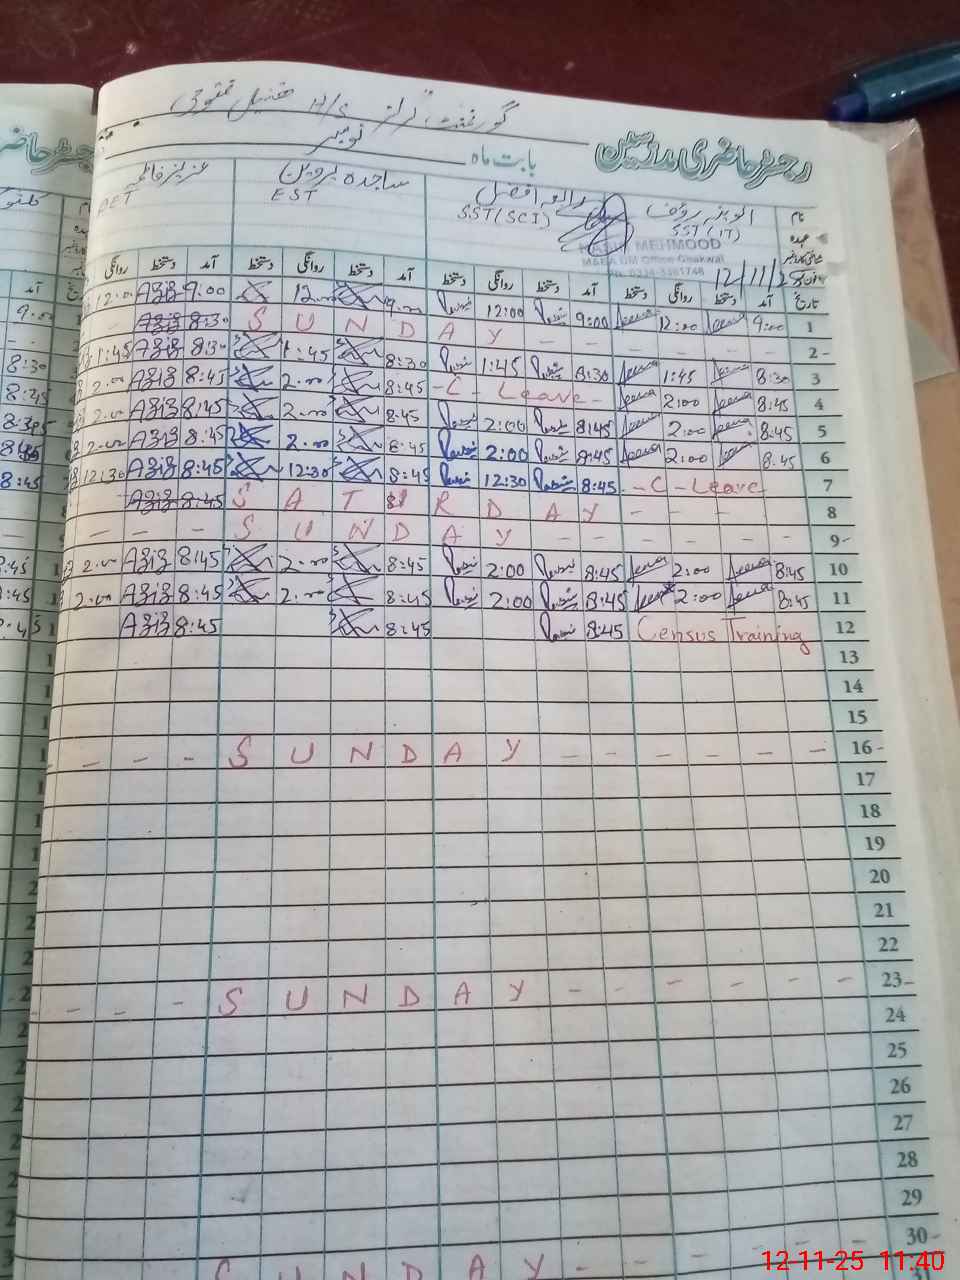 گورنمنٹ گرلز H/S
رجسٹر حاضری مدرسین بابت ماہ نومبر
رجسٹر حاضر
نام
عہدہ
SST (IT)
رابعہ افضل
SST (SCI)
ساجدہ پروین
EST
عزیز فاطمہ
MEHMOOD
M&EA DM Office Chakwal
12/11/25
تاریخ آمد دستخط روانگی دستخط آمد دستخط روانگی دستخط آمد دستخط روانگی دستخط آمد دستخط روانگی
1 9:00 12:00 9:00 12:00 9:00 12:00 9:00 Aziz 12:00
2 - - - - S U N D A Y 8:30 Aziz
3 8:30 1:45 8:30 1:45 8:30 1:45 8:30 Aziz 1:45
4 8:45 2:00 - C - Leave - 8:45 2:00 8:45 Aziz 2:00
5 8:45 2:00 8:45 2:00 8:45 2:00 8:45 Aziz 2:00
6 8:45 2:00 8:45 2:00 8:45 2:00 8:45 Aziz 2:00
7 - C - Leave 8:45 12:30 8:45 12:30 8:45 Aziz 12:30
8 - - - S A T U R D A Y 8:45 Aziz
9 - - - - - S U N D A Y - - - -
10 8:45 2:00 8:45 2:00 8:45 2:00 8:45 Aziz 2:00
11 8:45 2:00 8:45 2:00 8:45 2:00 8:45 Aziz 2:00
12 Census Training 8:45 8:45 8:45 Aziz
13
14
15
16 - - - - - - - S U N D A Y - - - -
17
18
19
20
21
22
23 - - - - - - - S U N D A Y - - - -
24
25
26
27
28
29
30 - - - - - - S U N D A Y
12-11-25 11:40